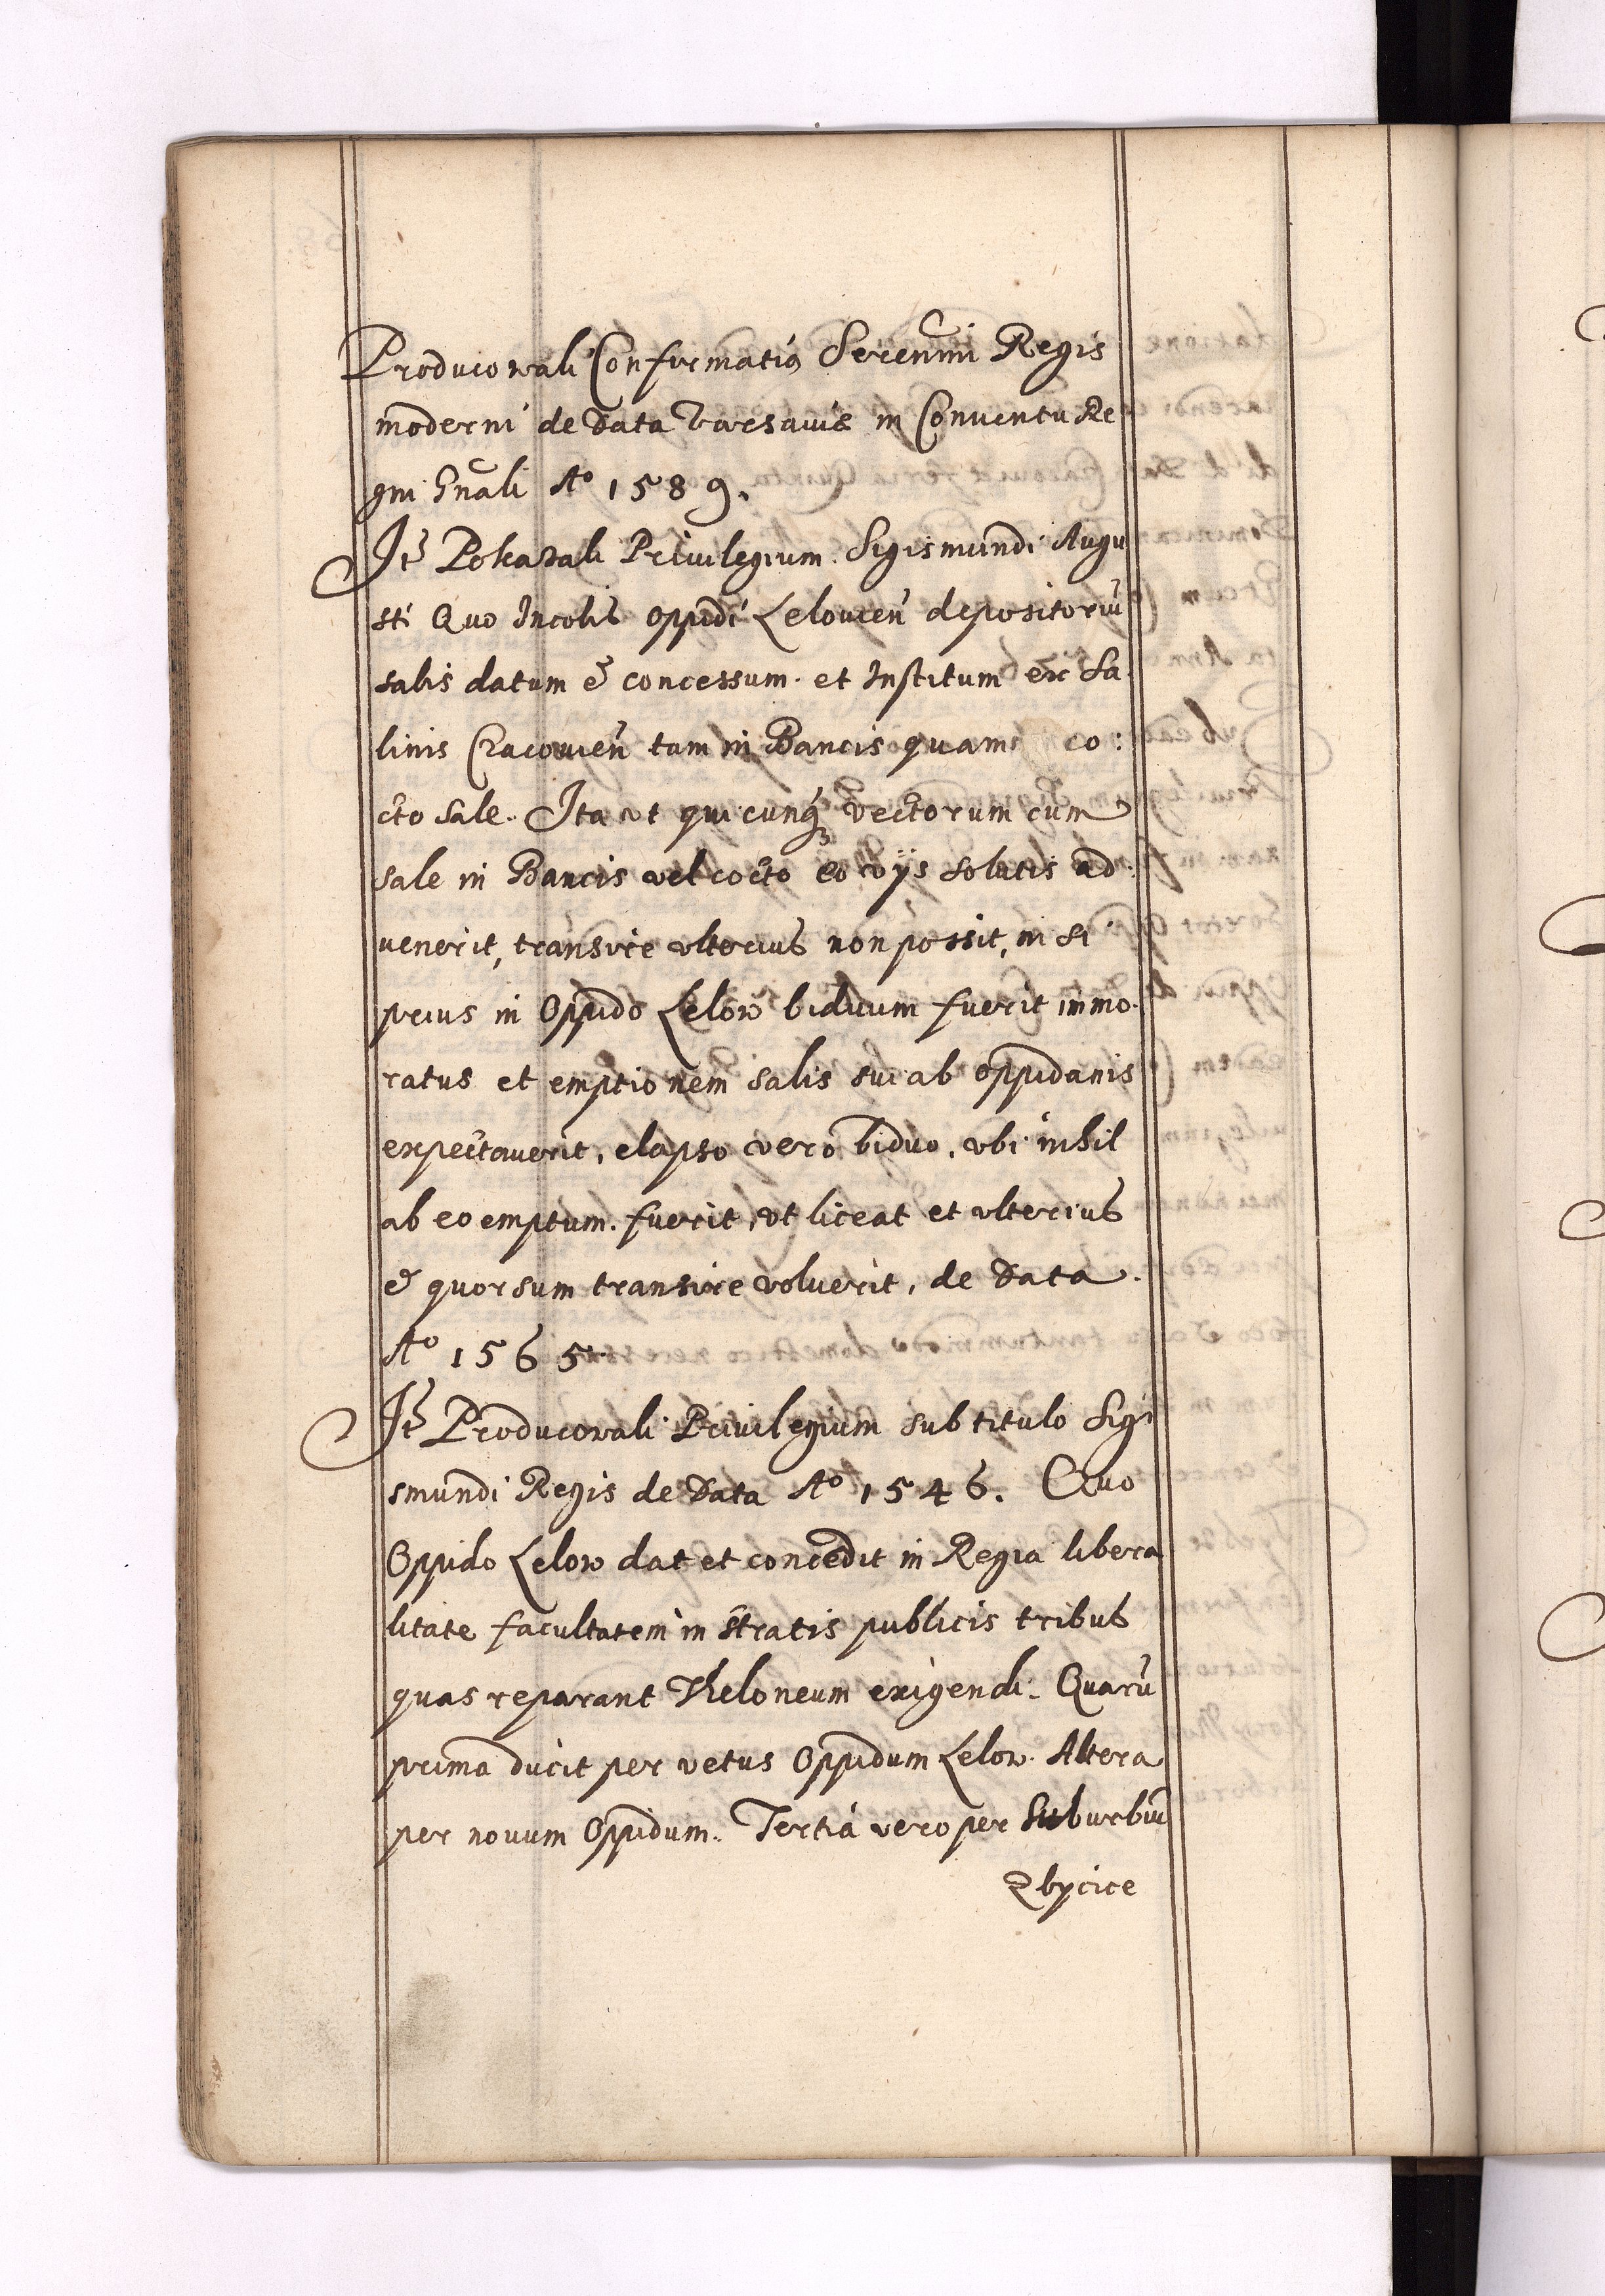 Producowali Confirmatią Serenmi Regis
moderni de Data Varsauiæ in Conuentu Re
gni Gnali Aº 1589.
Jt Pokazali Priuilegium Sigismundi Augu
sti Quo Incolis oppidi Lelouien depositoriu
salis datum & concessum et Institum ex Sa
linis Cracouien tam in Bancis quam co:
cto sale. Ita vt quicunq vectorum cum
sale in Bancis vel cocto eo
uenerit, transire vlterius non possit, ni si
prius in Oppido Lelow biduum fuerit immo
ratus et emptionem salis sui ab oppidanis
expectauerit, elapso vero biduo, vbi nihil
ab eo emptum fuerit, vt liceat et vlterius
& quorsum transire voluerit, de Data
Aº 1565.
Jt Producowali Priuilegium sub titulo Sigi
smundi Regis de Data Aº 1546. Quo
Oppido Lelow dat et concedit in Regia libera
litate facultatem in stratis publicis tribus
quas reparant Theloneum exigendi. Quaru
prima ducit per vetus Oppidum Lelow. Altera
per nouum Oppidum. Tertia vero per Suburbiu
Zbycice